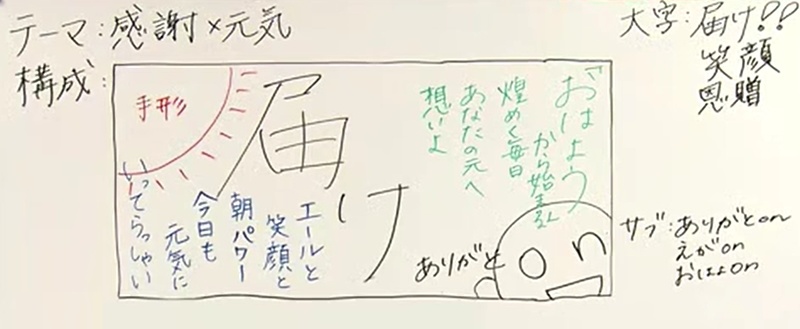 テーマ:感謝×元気
構成:
大字:届け!!
笑顔
恩贈
手形
届け
おはよう
から始まる
煌めく毎日
あなたの元へ
想いよ
エールと
笑顔と
朝パワー
今日も
元気に
いってらっしゃい
ありがとon
サブ:ありがとon
えがon
おはよon